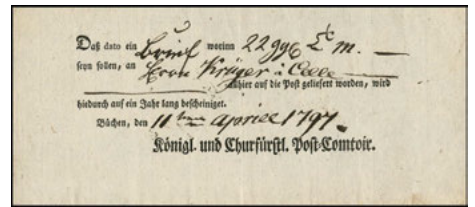 Daß dato ein Brief worinn 22 ggl
seyn sollen, an Herrn Krüger à Celle
allhier auf die Post geliefert worden, wird
hiedurch auf ein Jahr lang bescheiniget.
Büchen, den 11 ten Aprill 1797.
Königl. und Churfürstl. Post-Comtoir.